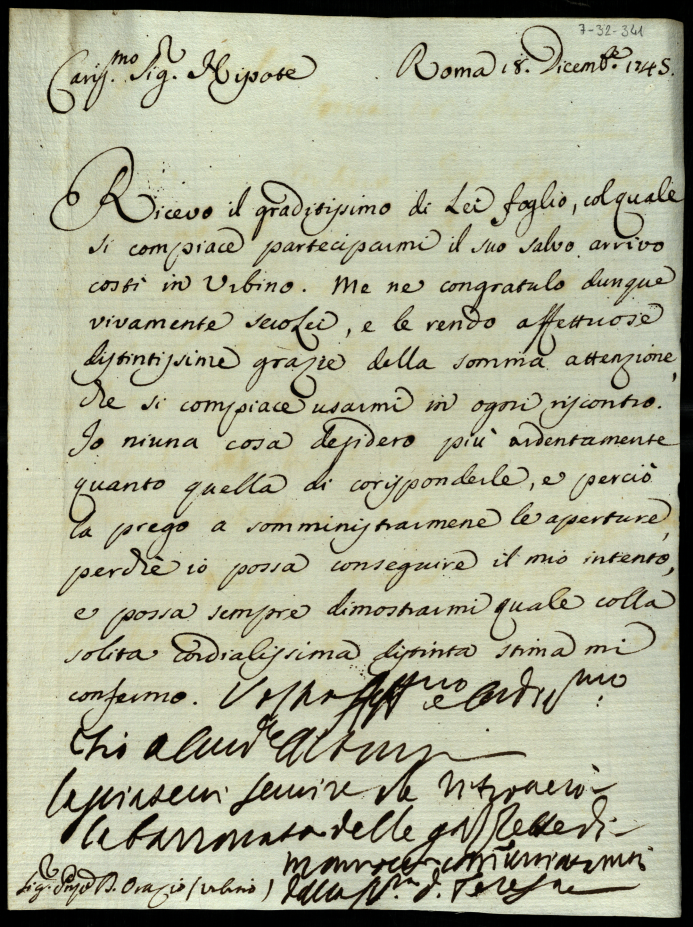 7-32-341
Cariss.mo Sig.r Nipote Roma 18. Dicemb.e 1745.
Ricevo il graditissimo di Lei foglio, col quale
si compiace parteciparmi il suo salvo arrivo
costì in Urbino. Me ne congratulo dunque
vivamente secoLei, e le rendo affettuose
distintissime grazie della somma attenzione,
che si compiace usarmi in ogni riscontro.
Io niuna cosa desidero più ardentemente
quanto quella di corisponderle, e perciò
la prego a somministrarmene le aperture,
perchè io possa conseguire il mio intento,
e possa sempre dimostrarmi quale colla
solita cordialissima distinta stima mi
confermo. Vostro Aff.mo e
Zio a Card.e Albani
lasciatevi servire che ritroverò
la delle
dalla S.ra D. Teresa
Sig.r D. Orazio (Urbino)